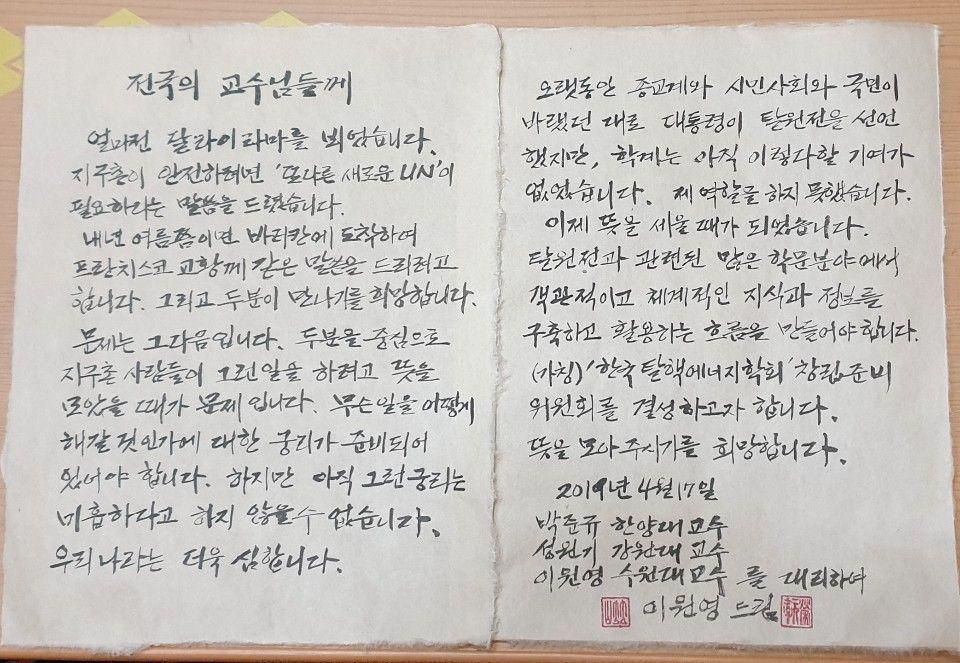 전국의 교수님들께
얼마전 달라이라마를 뵈었습니다.
지구촌이 안전하려면 '또다른 새로운 UN'이
필요하다는 말씀을 드렸습니다.
내년 여름쯤이면 바티칸에 도착하여
프란치스코 교황께 같은 말씀을 드리려고
합니다. 그리고 두분이 만나기를 희망합니다.
문제는 그다음입니다. 두분을 중심으로
지구촌 사람들이 그런일을 하려고 뜻을
모았을 때가 문제입니다. 무슨일을 어떻게
해갈 것인가에 대한 궁리가 준비되어
있어야 합니다. 하지만 아직 그런궁리는
미흡하다고 하지 않을수 없습니다.
우리나라는 더욱 심합니다.
오랫동안 종교계와 시민사회와 국민이
바랬던 대로 대통령이 탈원전을 선언
했지만, 학계는 아직 이렇다할 기여가
없었습니다. 제 역할을 하지 못했습니다.
이제 뜻을 세울 때가 되었습니다.
탈원전과 관련된 많은 학문분야에서
객관적이고 체계적인 지식과 정보를
구축하고 활용하는 흐름을 만들어야 합니다.
(가칭)'한국탈핵에너지학회'창립준비
위원회를 결성하고자 합니다.
뜻을 모아주시기를 희망합니다.
2019년 4월 17일
박준규 한양대 교수
성원기 강원대 교수
이원영 수원대교수 를 대리하여
이원영 드림